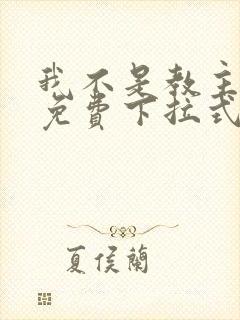 我不是教主
免費下拉式
夏侯蘭